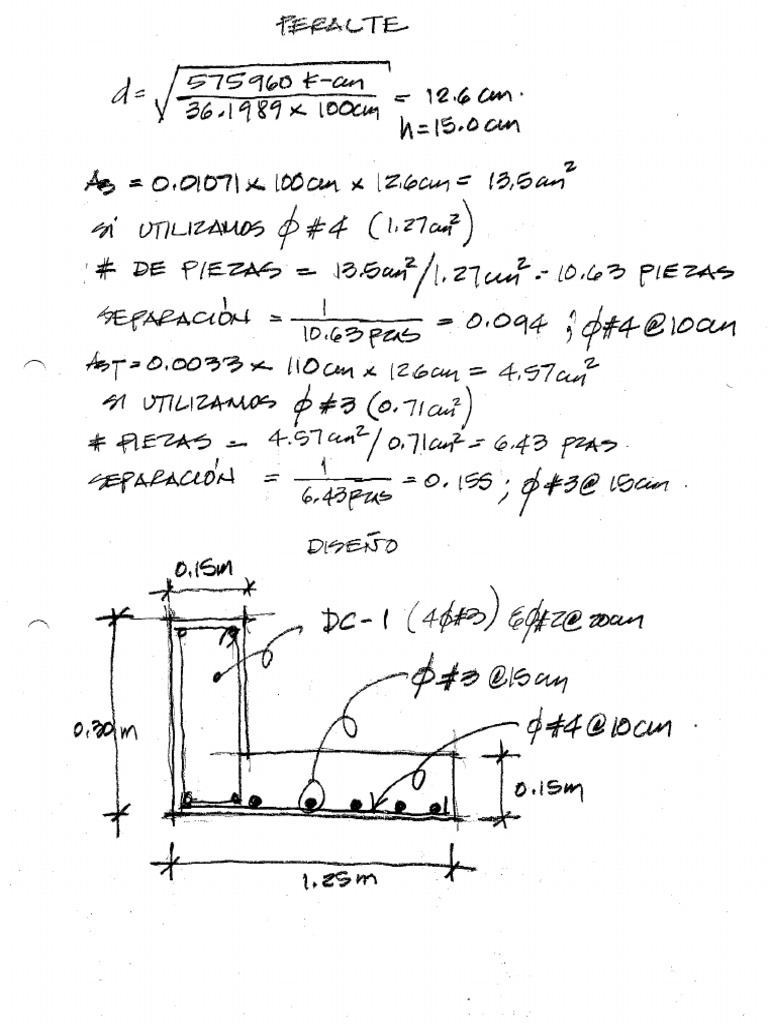 PERALTE
d = √ 575960 K-cm / 36.1989 x 100cm = 12.6 cm.
h = 15.0 cm
As = 0.01071 x 100cm x 12.6cm = 13.5cm²
SI UTILIZAMOS ϕ #4 (1.27cm²)
# DE PIEZAS = 13.5cm²/1.27cm² = 10.63 PIEZAS
SEPARACIÓN = 1 / 10.63 pzas = 0.094 ; ϕ#4@10cm
AsT = 0.0033 x 110cm x 12.6cm = 4.57cm²
SI UTILIZAMOS ϕ #3 (0.71cm²)
# PIEZAS = 4.57cm²/0.71cm² = 6.43 PZAS.
SEPARACIÓN = 1 / 6.43 pzas = 0.155 ; ϕ#3@15cm.
DISEÑO
0.15m
DC-1 (4ϕ#3) Eϕ#2@20cm
ϕ#3@15cm
0.30m
ϕ#4@10cm.
0.15m
1.25m